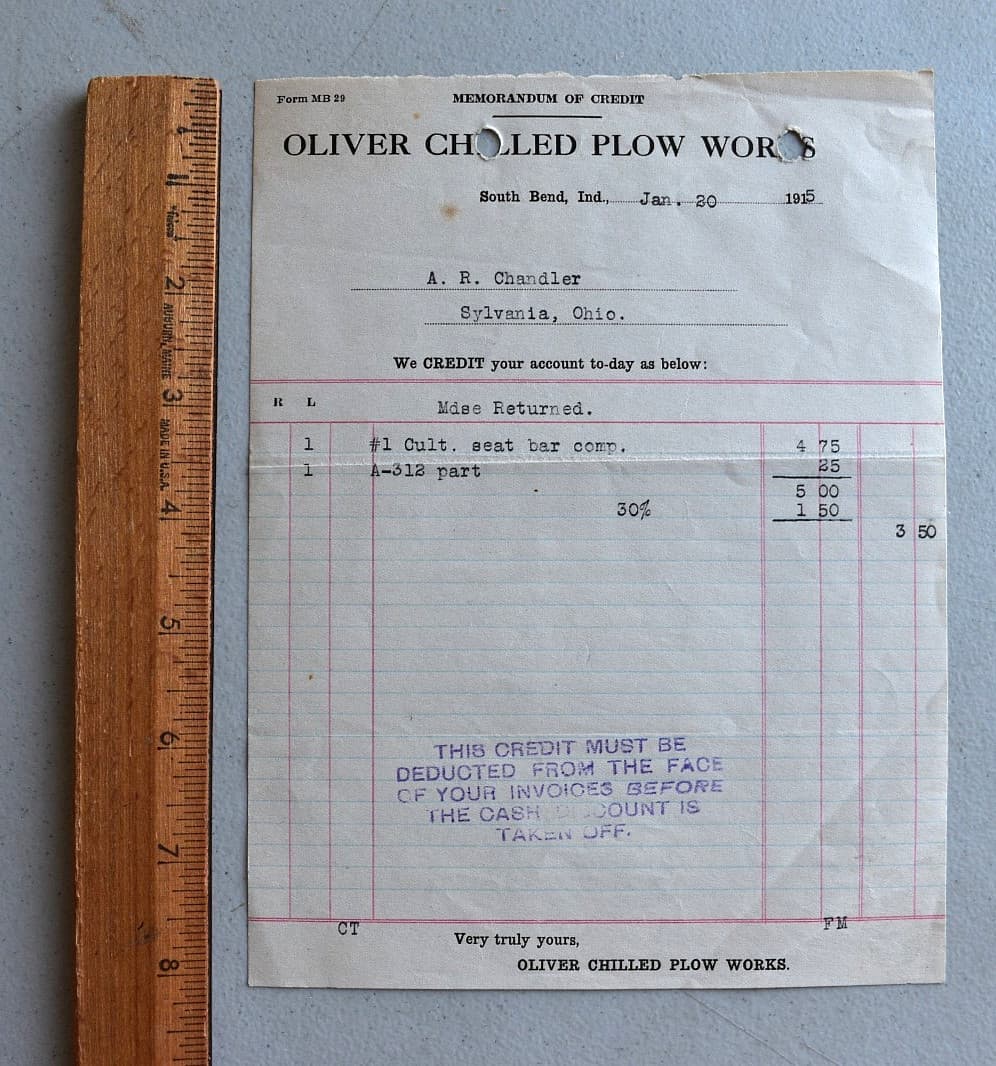 Form MB 29
MEMORANDUM OF CREDIT
OLIVER CHILLED PLOW WORKS
South Bend, Ind., Jan. 20 1915
A. R. Chandler
Sylvania, Ohio.
We CREDIT your account to-day as below:
R L
Mdse Returned.
1 #1 Cult. seat bar comp. 4 75
1 A-312 part 25
5 00
30% 1 50
3 50
THIS CREDIT MUST BE
DEDUCTED FROM THE FACE
OF YOUR INVOICES BEFORE
THE CASH DISCOUNT IS
TAKEN OFF.
CT FM
Very truly yours,
OLIVER CHILLED PLOW WORKS.
1
2
3
4
5
6
7
8
AUBURN, MAINE MADE IN U.S.A.